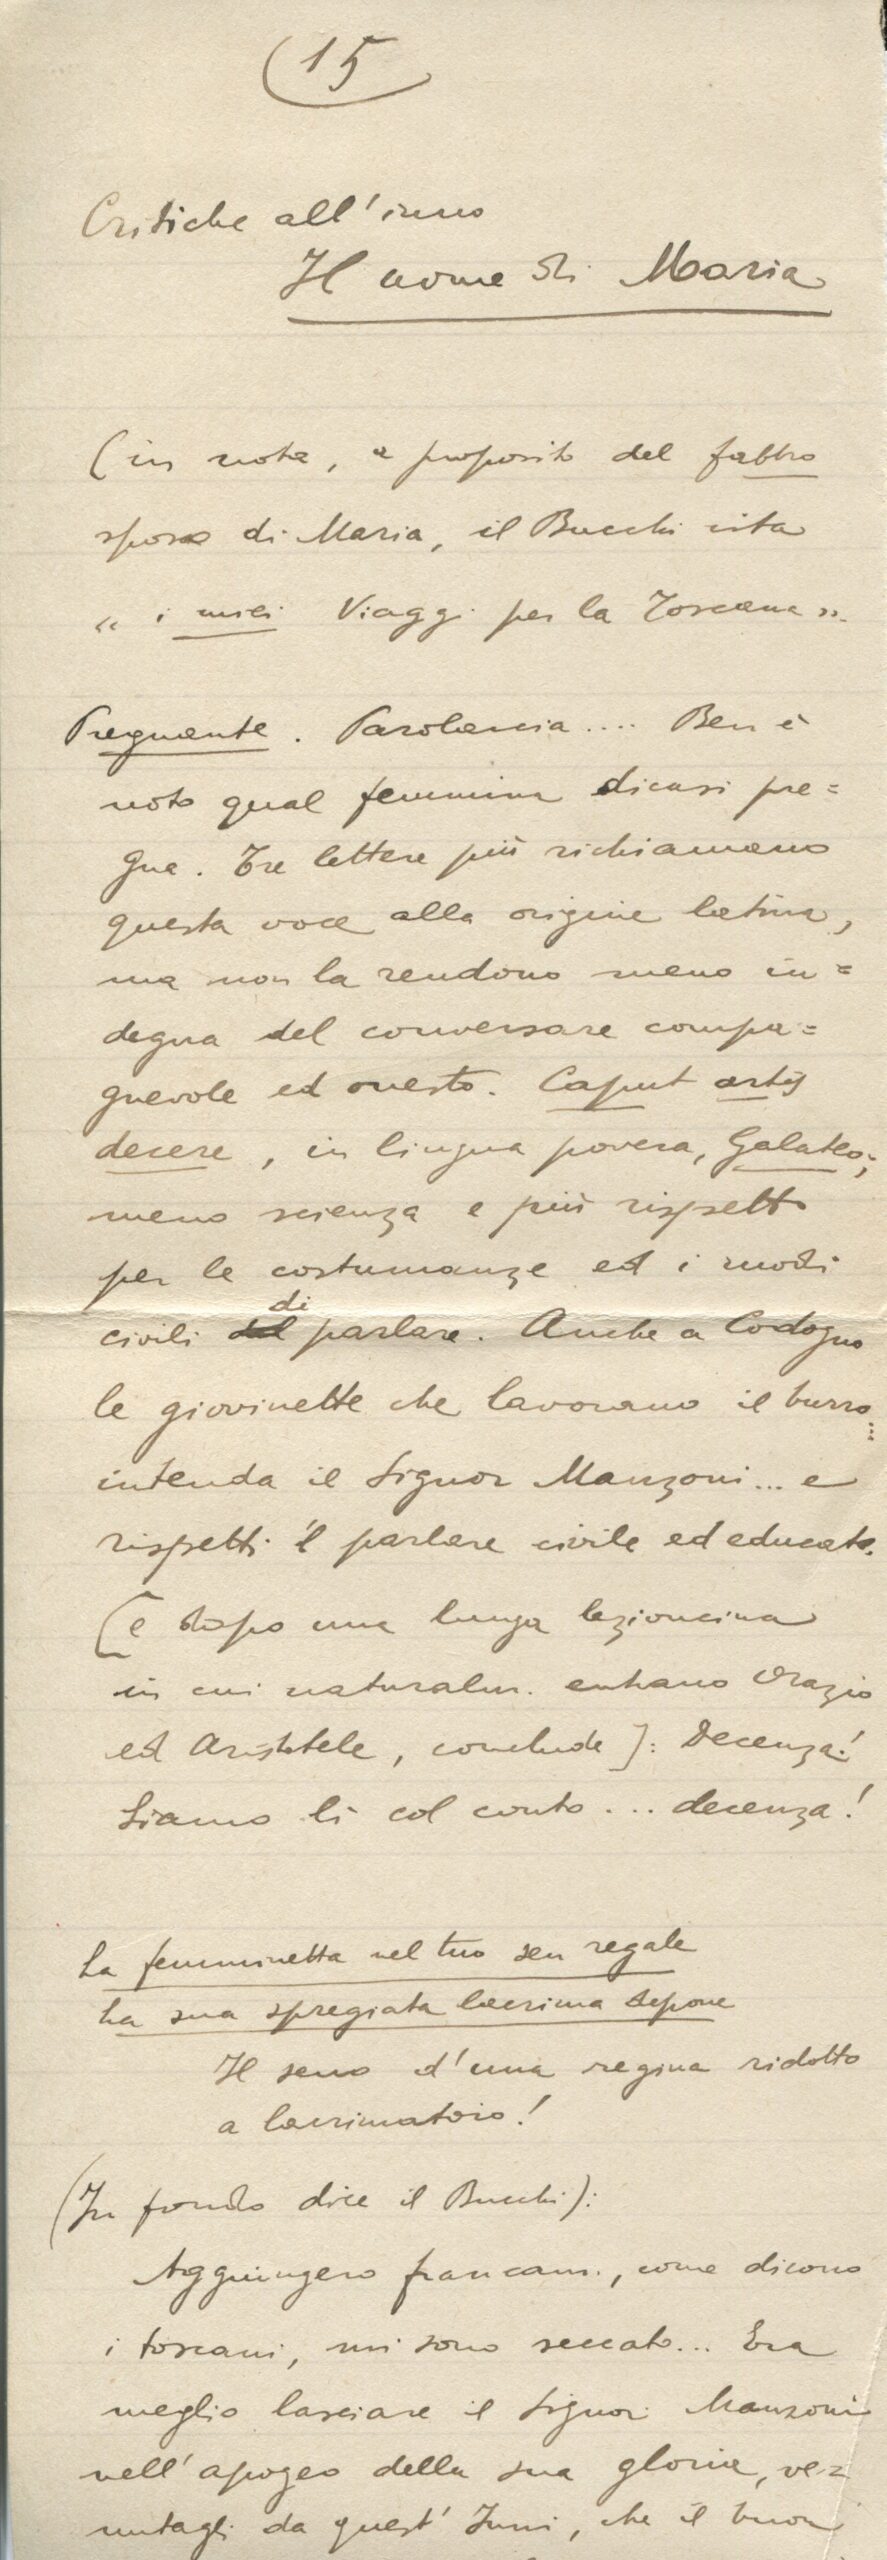 15
Critiche all'inno
Il nome di Maria
(in nota, a proposito del fabbro
sposo di Maria, il Bucchi cita
« i miei Viaggi per la Toscana ».
Pregnante. Parolaccia.... Ben è
noto qual femmina dicasi pre=
gna. Tre lettere più richiamano
questa voce alla origine latina,
ma non la rendono meno in=
degna del conversare compa=
gnevole ed onesto. Caput artis
decere, in lingua povera, Galateo;
meno scienza e più rispetto
per le costumanze ed i modi
civili del di parlare. Anche a Codogno
le giovinette che lavorano il burro...
intenda il Signor Manzoni... e
rispetti il parlare civile ed educato.
[e dopo una lunga lezioncina
in cui naturalm. entrano Orazio
ed Aristotele, conclude]: Decenza!
Siamo lì col conto... decenza!
La femminetta nel tuo sen regale
La sua spregiata lacrima depone
Il seno d'una regina ridotto
a lacrimatoio!
(In fondo dice il Bucchi):
Aggiungero francam., come dicono
i toscani, mi sono seccato... Era
meglio lasciare il Signor Manzoni
nell'apogeo della sua gloria, ve=
nutagli da quest'Inni, che il buon